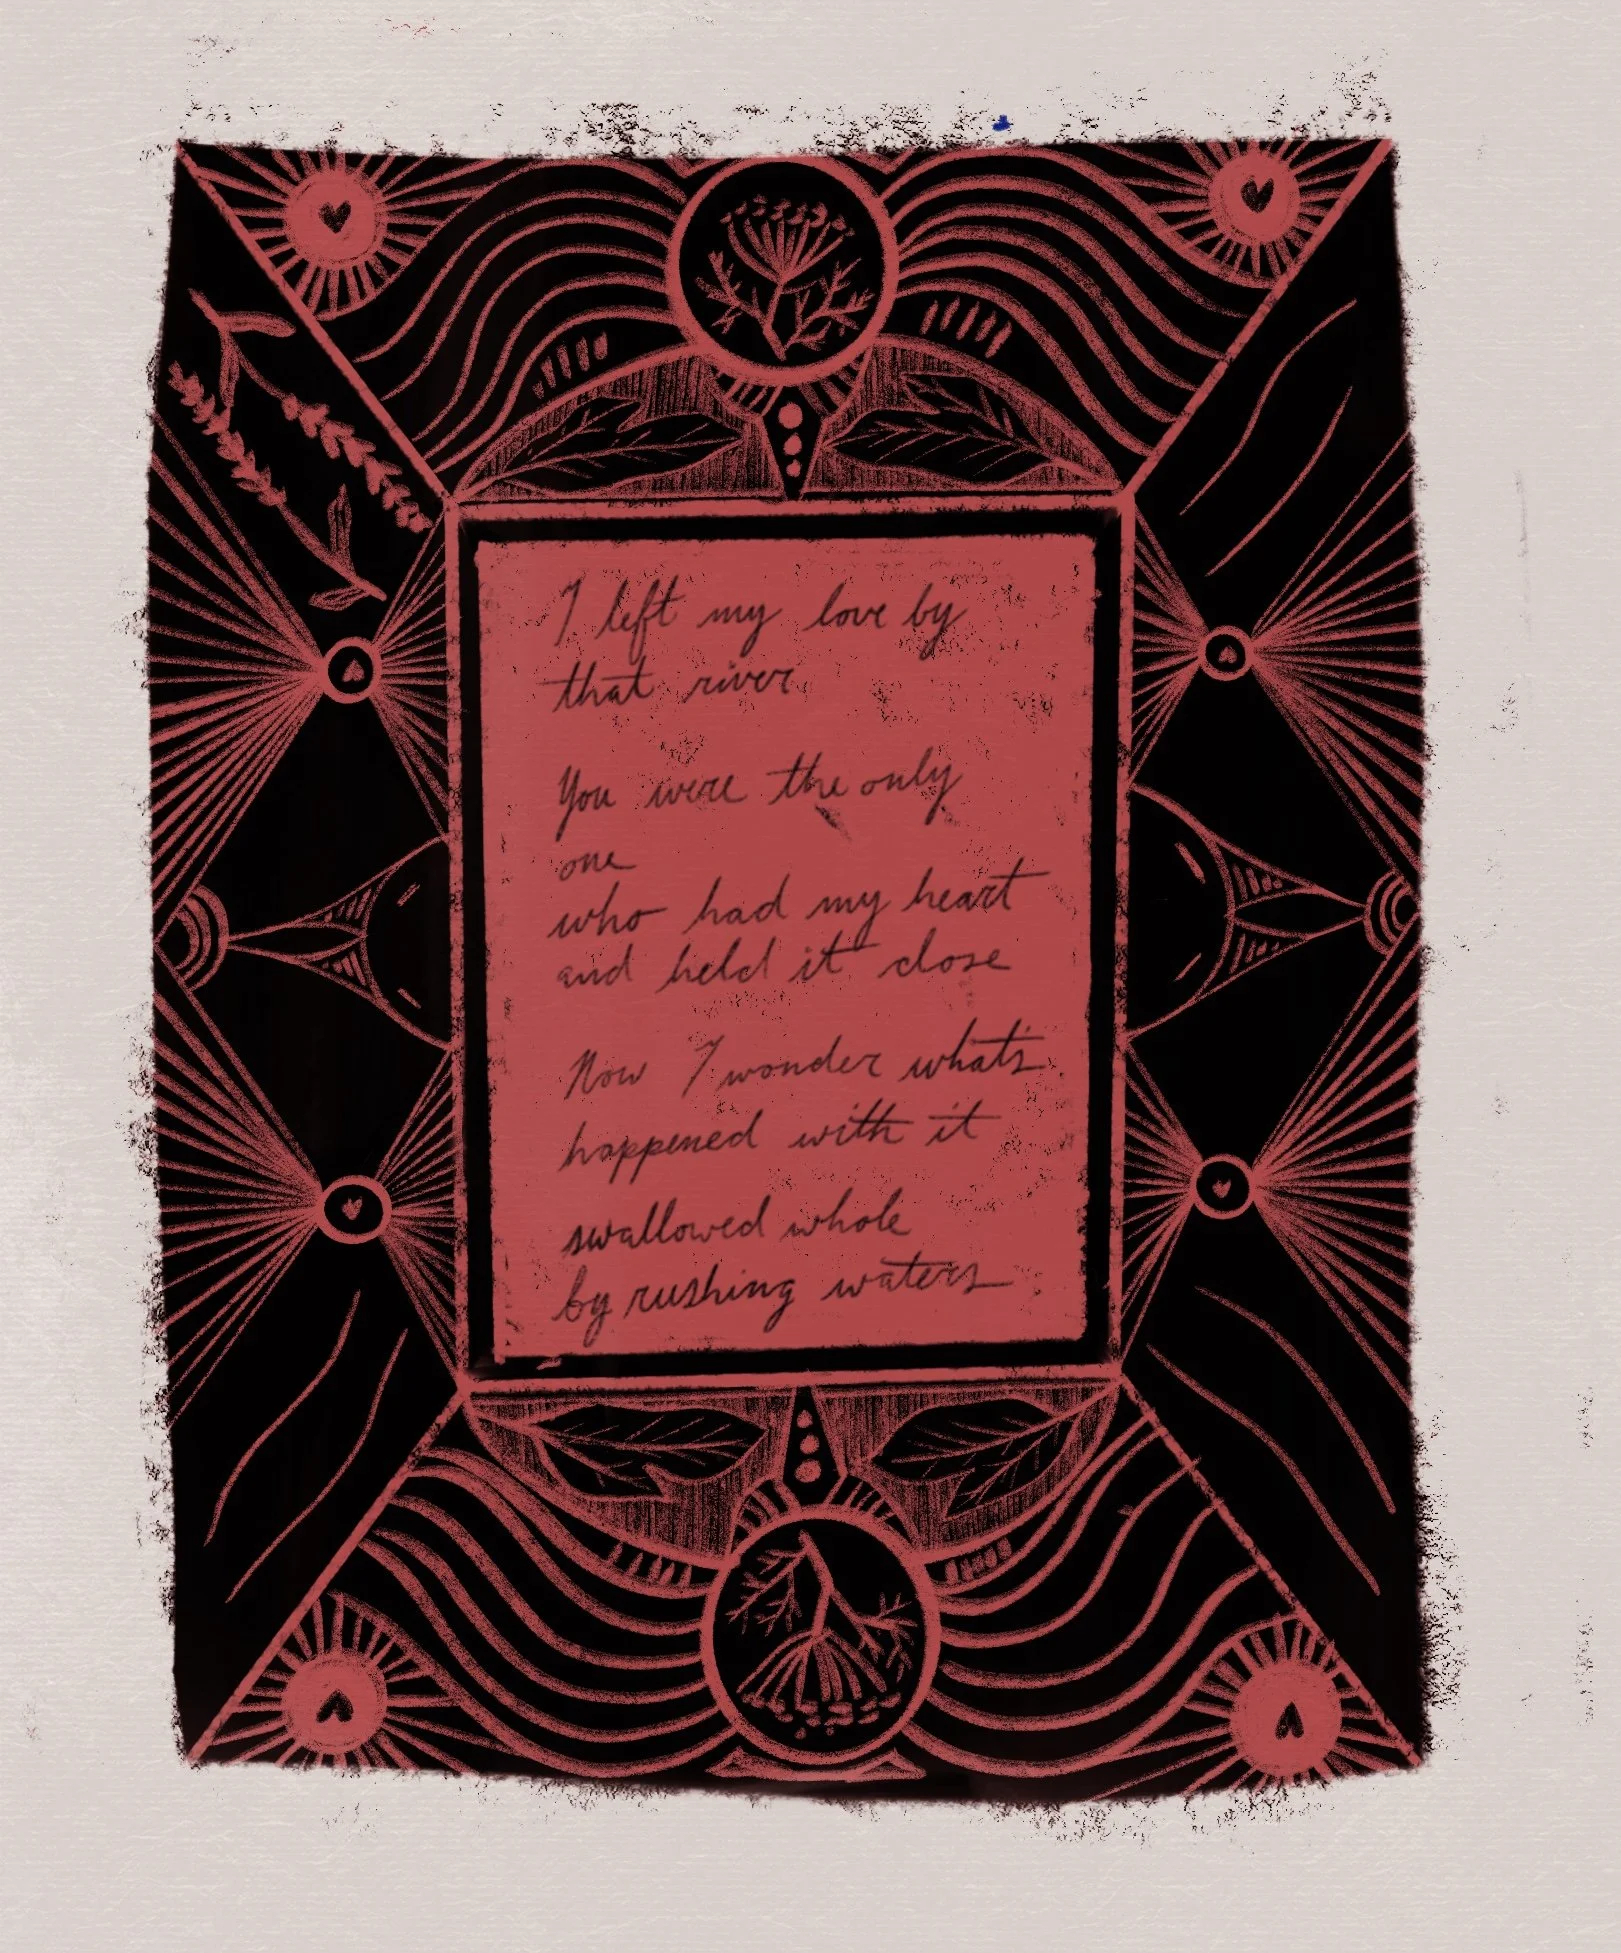 I left my love by
that river
You were the only
one
who had my heart
and held it close
Now I wonder what's
happened with it
swallowed whole
by rushing waters